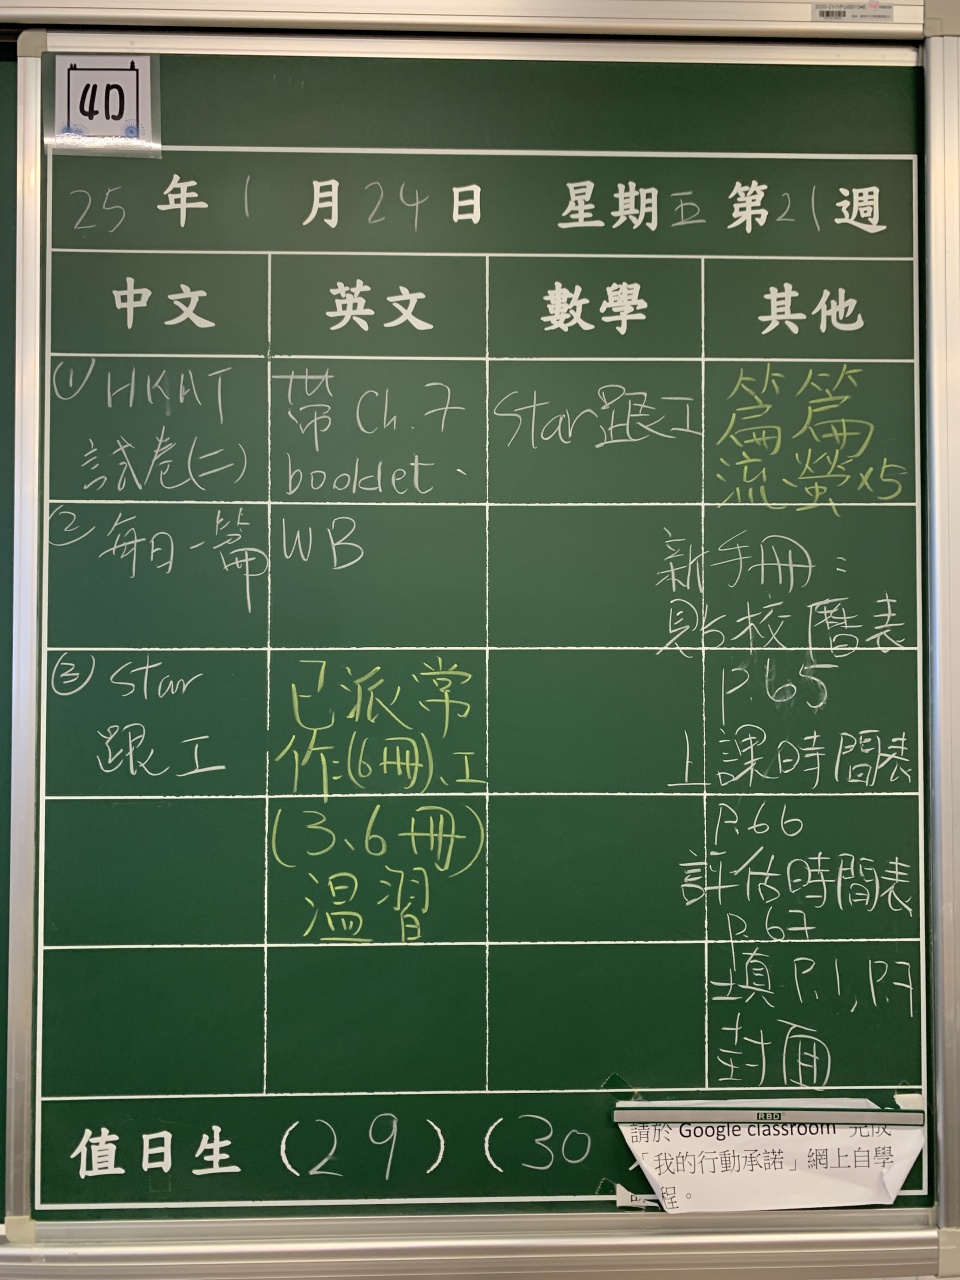 4D
25年1月24日 星期五 第21週
中文 英文 數學 其他
① HKAT
試卷(二)
② 每日一篇
③ Star
跟工
帶 Ch.7
booklet、
WB
已派常
作:(6冊)、工
(3、6冊)
溫習
Star跟工
篇篇
流螢x5
新手冊:
貼校曆表
P.65
上課時間表
P.66
評估時間表
P.67
填 P.1, P.7
封面
值日生 (29) (30
RBD
請於 Google classroom 完成
「我的行動承諾」網上自學
程。